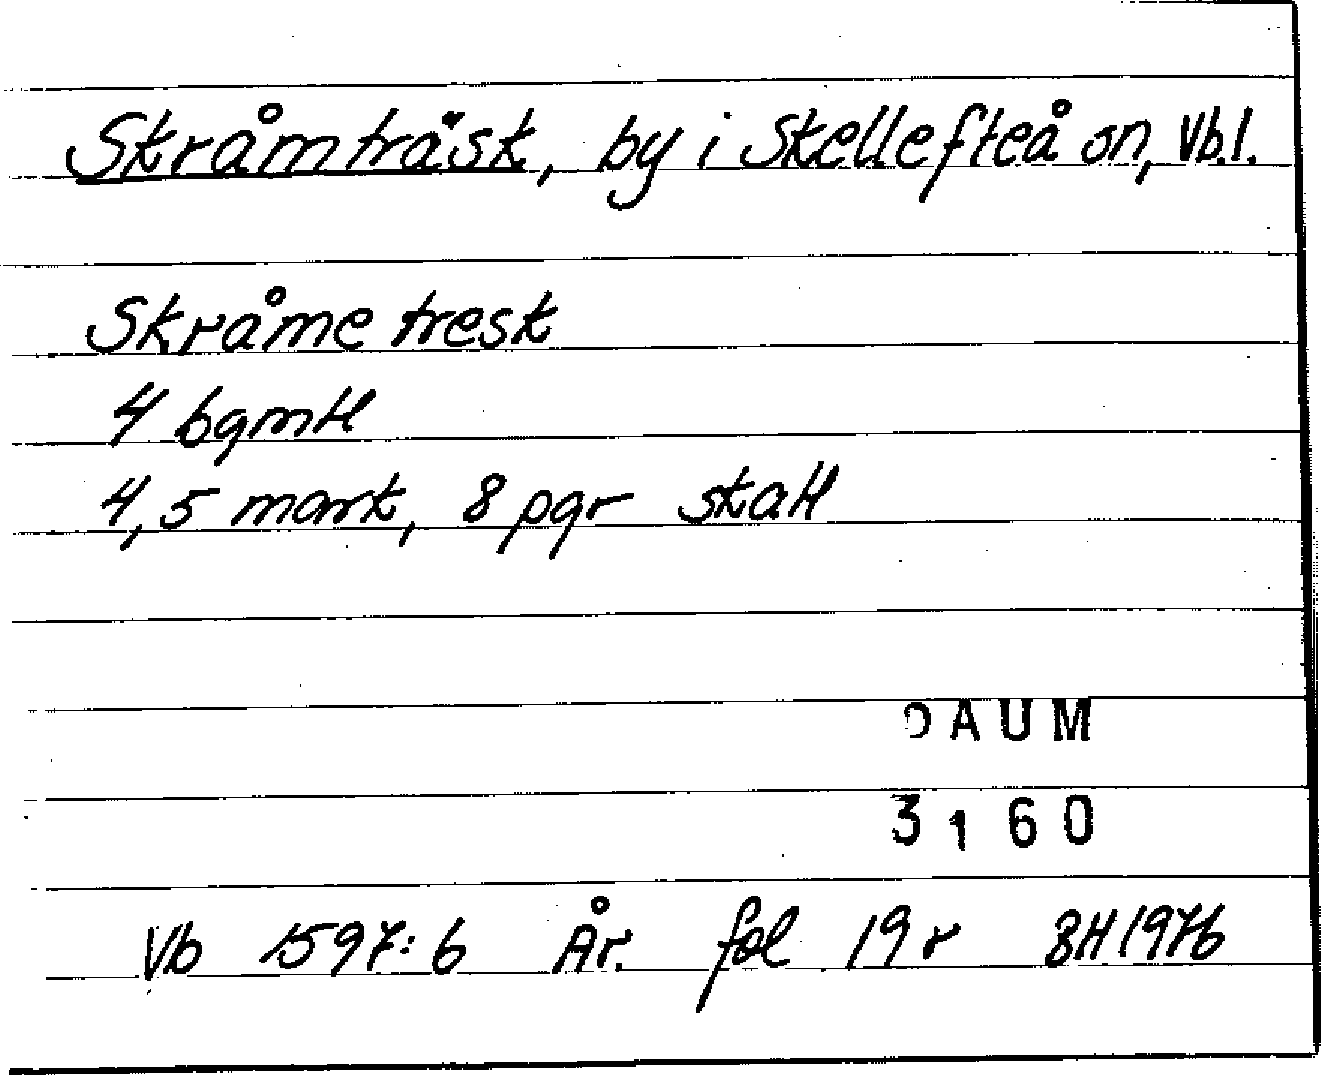 Skråmträsk, by i Skellefteå sn, Vb.l.
Skråme tresk
4 bgmtl
4,5 mark, 8 pgr skatt
DAUM
3160
Vb 1597:6 År. fol 19 r BH 1976